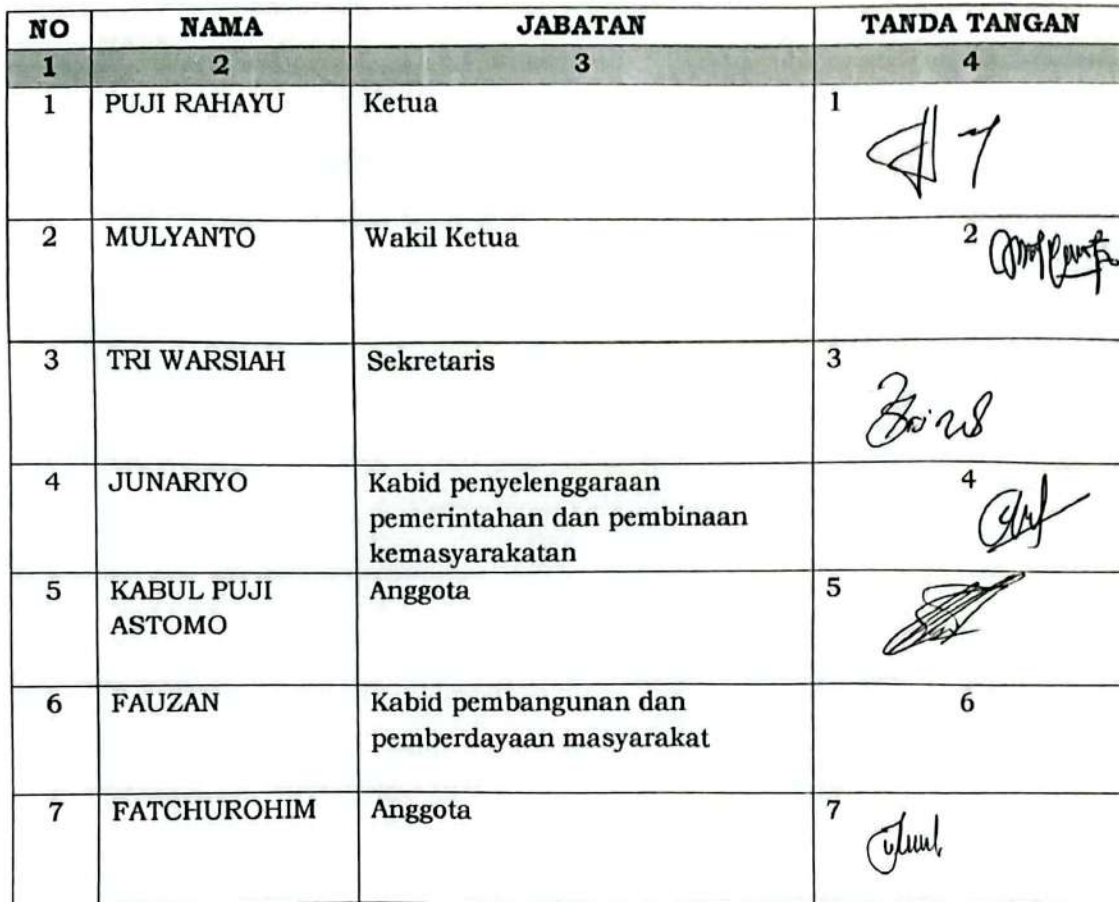 NO NAMA JABATAN TANDA TANGAN
1 2 3 4
1 PUJI RAHAYU Ketua 1
2 MULYANTO Wakil Ketua 2
3 TRI WARSIAH Sekretaris 3
4 JUNARIYO Kabid penyelenggaraan 4
pemerintahan dan pembinaan
kemasyarakatan
5 KABUL PUJI Anggota 5
ASTOMO
6 FAUZAN Kabid pembangunan dan 6
pemberdayaan masyarakat
7 FATCHUROHIM Anggota 7